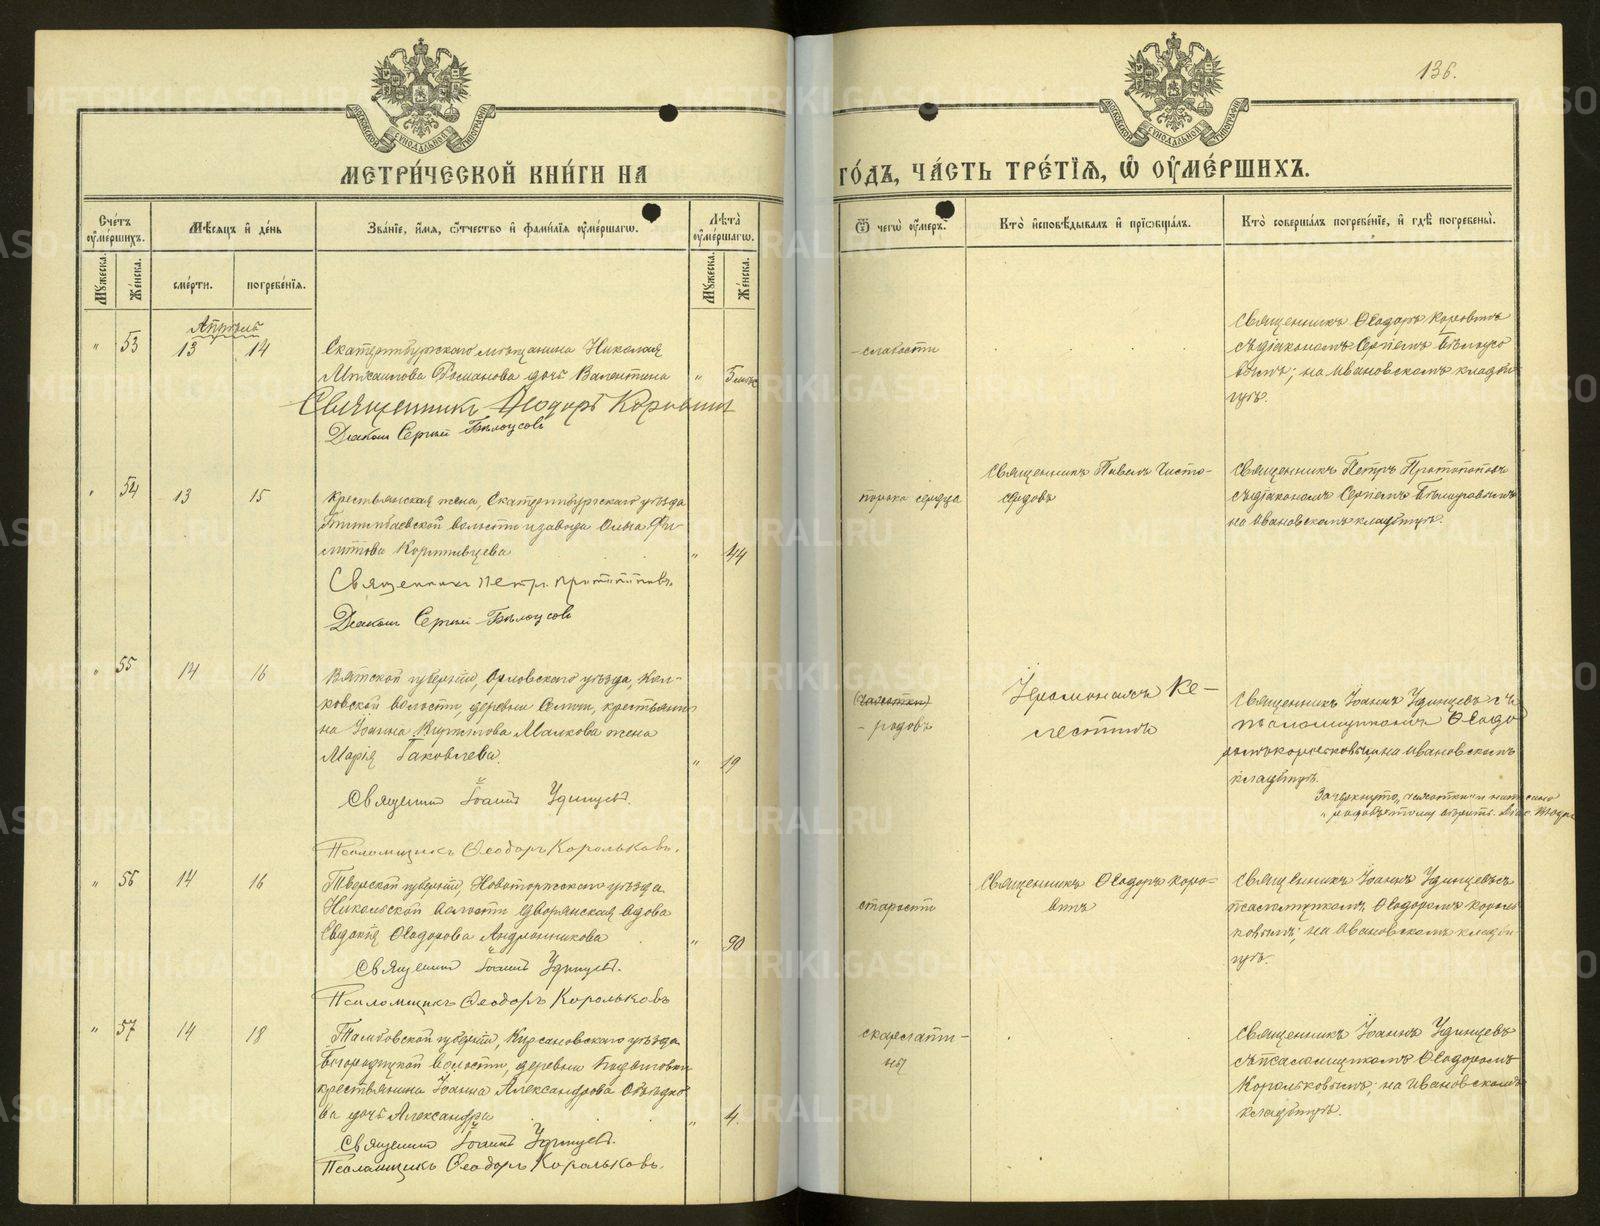 136.
МОСКОВСКОЙ СѴНОДАЛЬНОЙ ТИПОГРАФІИ
МОСКОВСКОЙ СѴНОДАЛЬНОЙ ТИПОГРАФІИ
МЕТРИ́ЧЕСКОЙ КНИ́ГИ НА
ГО́ДЪ, ЧА́СТЬ ТРЕ́ТІѦ, Ѡ҆ ОУ҆МЕ́РШИХЪ.
Сче́тъ оу҆ме́ршихъ.
Мѣ́сяцъ и҆ де́нь
Зва́ніе, и҆́мя, ѻ҆́тчество и҆ фами́лія оу҆ме́ршагѡ.
Лѣ́та оу҆ме́ршагѡ.
Ѿ чегѡ̀ оу҆́меръ.
Кто̀ и҆сповѣ́дывалъ и҆ прїѡбща́лъ.
Кто̀ соверша́лъ погребе́ніе, и҆ гдѣ̀ погребены̀.
Мꙋ́жеска.
Же́нска.
сме́рти.
погребе́нія.
Мꙋ́жеска.
Же́нска.
Апрѣль
" 53 13 14
Екатеринбургскаго мѣщанина Николая
Михаилова Романова дочь Валентина
" 5 мѣс
Священникъ Ѳеодоръ Коровинъ
Діаконъ Сергій Бѣлоусовъ
слабости
Священникъ Ѳеодоръ Коровинъ
съ діакономъ Сергіемъ Бѣлоусо
вымъ; на Ивановскомъ кладби
щѣ.
" 54 13 15
Крестьянская жена, Екатеринбургскаго уѣзда
Билимбаевской волости и завода Ольга Фи
липпова
" 44
Священникъ Петръ Протопоповъ.
Діаконъ Сергій Бѣлоусовъ
порока сердца
Священникъ Павелъ Чисто-
сердовъ
Священникъ Петръ Протопоповъ
съ діакономъ Сергіемъ Бѣлоусовымъ
на Ивановскомъ кладбищѣ.
" 55 14 16
Вятской губерніи, Орловскаго уѣзда, Кол-
ковской волости, деревни крестьяни
на Іоанна Кириллова Малкова жена
Марія Іаковлева.
" 19
Священникъ Іоаннъ Удинцевъ.
Псаломщикъ Ѳеодоръ Корольковъ.
(чахотки)
- родовъ
Іеромонахъ Ке-
лестинъ
Священникъ Іоаннъ Удинцевъ съ
псаломщикомъ Ѳеодо
ромъ Корольковымъ, на Ивановскомъ
кладбищѣ.
Зачеркнуто „чахотки" и написано
„родовъ" тому вѣрить.
" 56 14 16
Тверской губерніи, Новоторжскаго уѣзда
Никольской волости дворянская вдова
Евдокія Ѳеодорова Андронникова
" 90
Священникъ Іоаннъ Удинцевъ.
Псаломщикъ Ѳеодоръ Корольковъ
старости
Священникъ Ѳеодоръ Коро-
винъ
Священникъ Іоаннъ Удинцевъ съ
псаломщикомъ Ѳеодоромъ Король
ковымъ; на Ивановскомъ кладби
щѣ.
" 57 14 18
Тамбовской губерніи, Кирсановскаго уѣзда
Богородицкой волости, деревни
крестьянина Іоанна Александрова Объѣдко
ва дочь Александра
" 4.
Священникъ Іоаннъ Удинцевъ.
Псаломщикъ Ѳеодоръ Корольковъ.
скарлати-
ны
Священникъ Іоаннъ Удинцевъ
съ псаломщикомъ Ѳеодоромъ
Корольковымъ; на Ивановскомъ
кладбищѣ.
METRIKI.GASO-URAL.RU